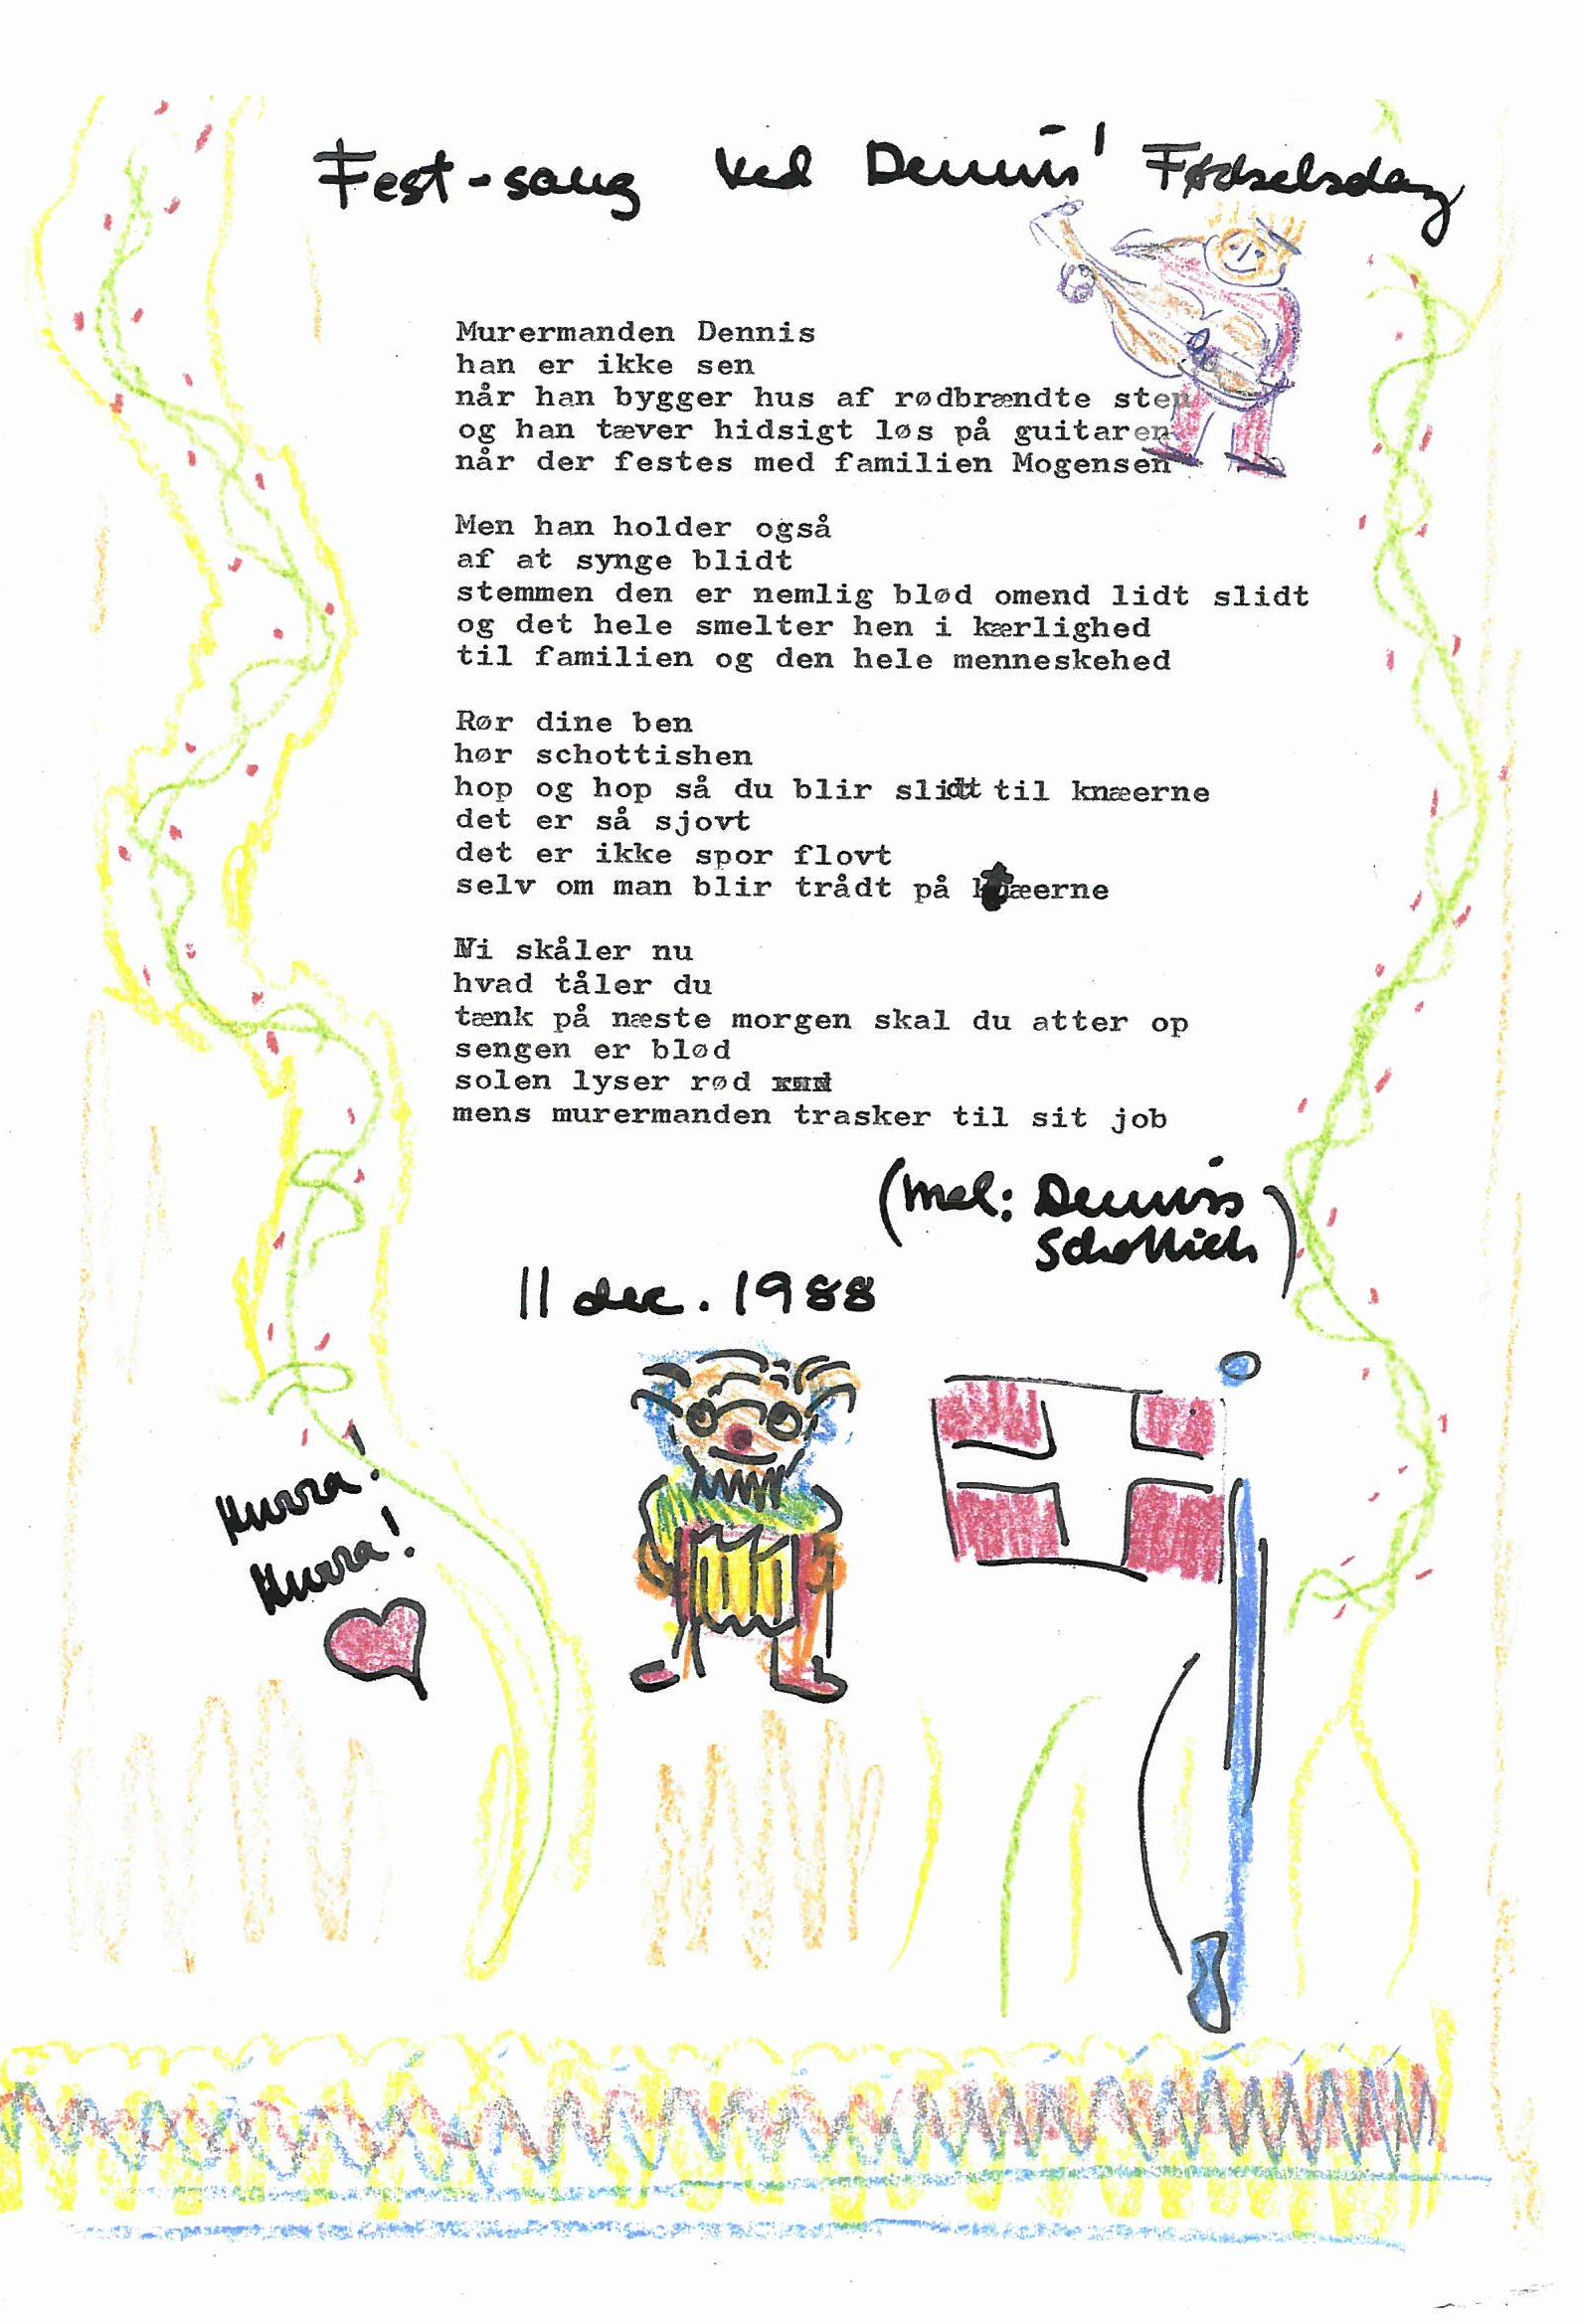 Fest-sang ved Dennis' Fødselsdag
Murermanden Dennis
han er ikke sen
når han bygger hus af rødbrændte sten
og han tæver hidsigt løs på guitaren
når der festes med familien Mogensen
Men han holder også
af at synge blidt
stemmen den er nemlig blød omend lidt slidt
og det hele smelter hen i kærlighed
til familien og den hele menneskehed
Rør dine ben
hør schottishen
hop og hop så du blir slidt til knæerne
det er så sjovt
det er ikke spor flovt
selv om man blir trådt på tæerne
Vi skåler nu
hvad tåler du
tænk på næste morgen skal du atter op
sengen er blød
solen lyser rød
mens murermanden trasker til sit job
(Mel: Dennis
Schottich)
11 dec. 1988
Hurra!
Hurra!